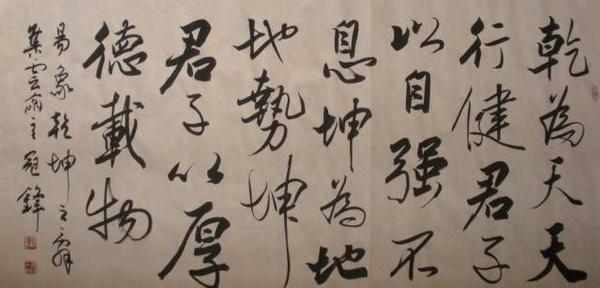 乾為天天
行健君子
以自强不
息坤為地
地勢坤
君子以厚
德載物
易象乾坤之辞
雲雨主冠鋒